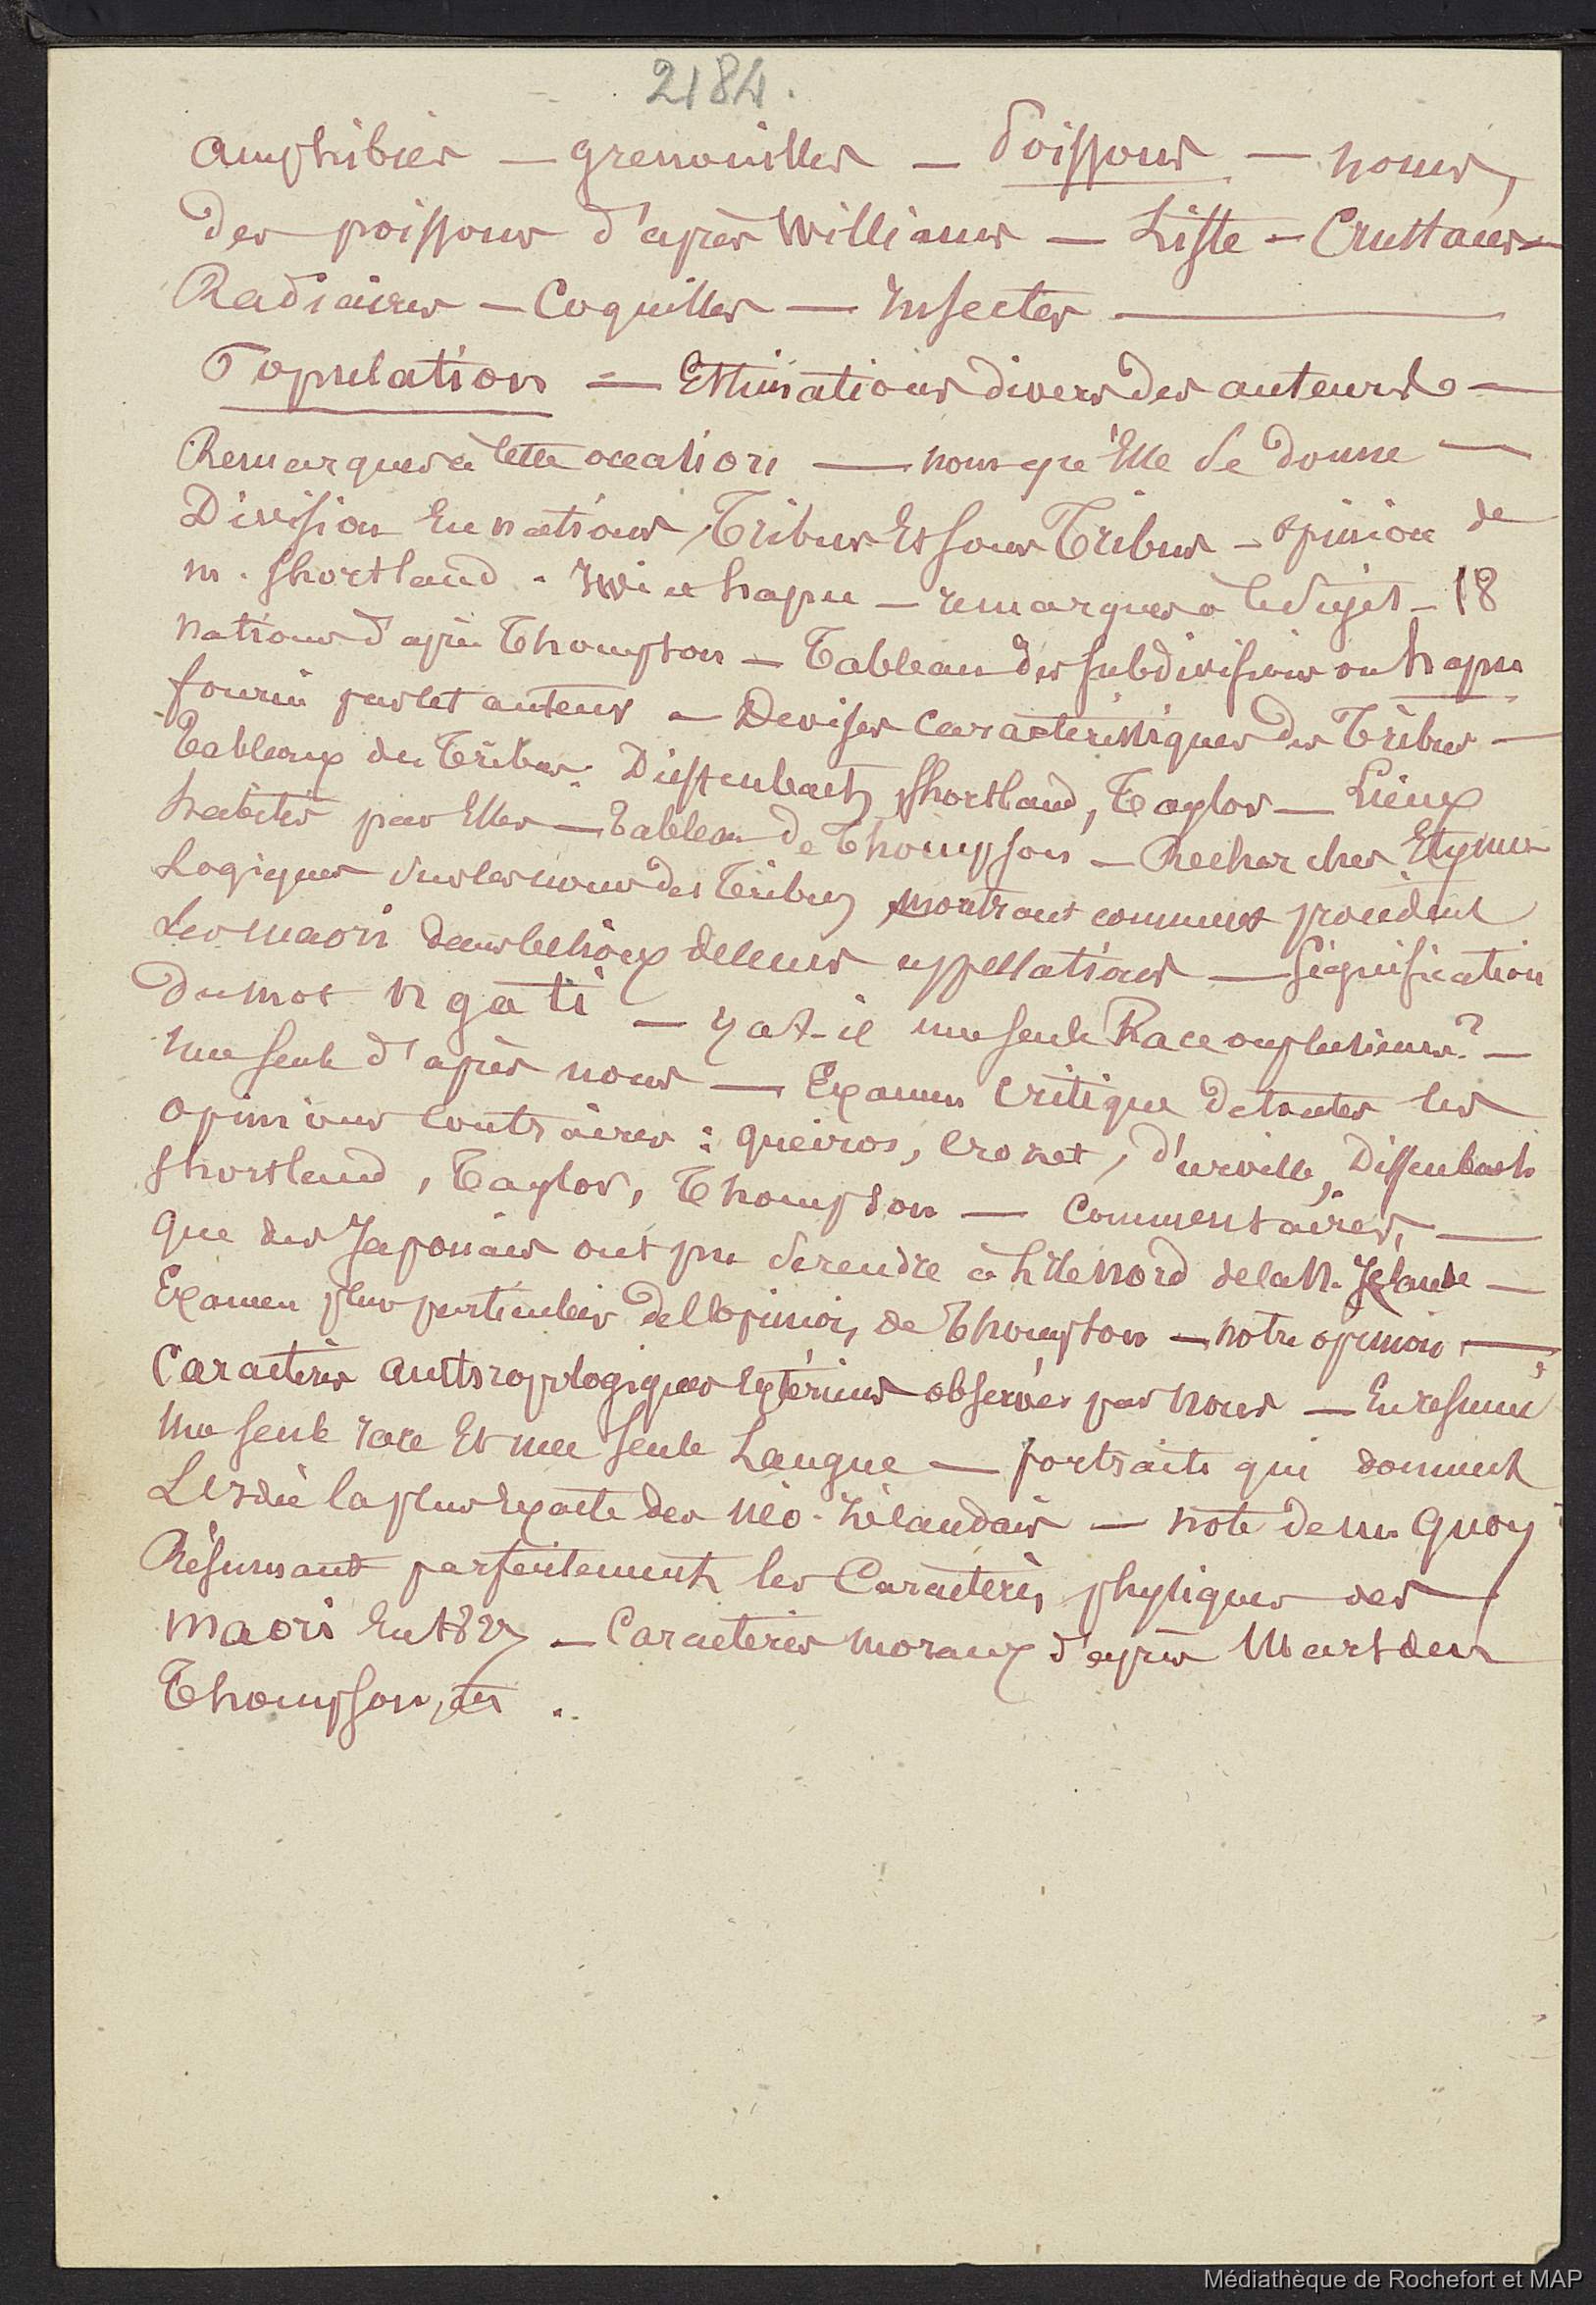 2184.
amphibies — grenouilles — Poissons — noms,
des poissons d'après Williams — Liste — Crustacés —
Radiaires — Coquilles — Insectes —
Population — Estimations divers des auteurs —
Remarques à cette occasion — nom qu'Elle se donne —
Division En nations, Tribus Et sous Tribus — opinion de
m. Shortland - Iwi et hapu — remarques à ce sujet — 18
nations d'après Thompson — Tableau des subdivisions ou hapu
fourni par cet auteur — Devises caractéristiques des Tribus —
Tableaux des Tribus: Dieffenbach, Shortland, Taylor — Lieux
habités par Elles — Tableau de Thompson — Recherches Etymo
Logiques sur les noms des Tribus, montrant comment procèdent
Les maori dans le choix de leurs appellations — Signification
du mot ngati — y a t-il une seule Race ou plusieurs? —
une seule d'après nous — Examen critique de toutes les
opinions contraires: Queiros, Crozet, d'urville, Diffenbach
Shortland, Taylor, Thompson — Commentaires, —
que des Japonais ont pu se rendre à l'île nord de la N. Zélande —
Examen plus particulier de l'opinion de Thompson — notre opinion —,
Caractères anthropologiques Extérieurs observés par nous — En résumé
une seule race Et une seule Langue — portraits qui donnent
L'idée la plus Exacte des néo-zélandais — note de m. Quoy
Résumant parfaitement les Caractères physiques des
maori En 1827 — Caractères moraux d'après Marsden
Thompson, etc.
Médiathèque de Rochefort et MAP